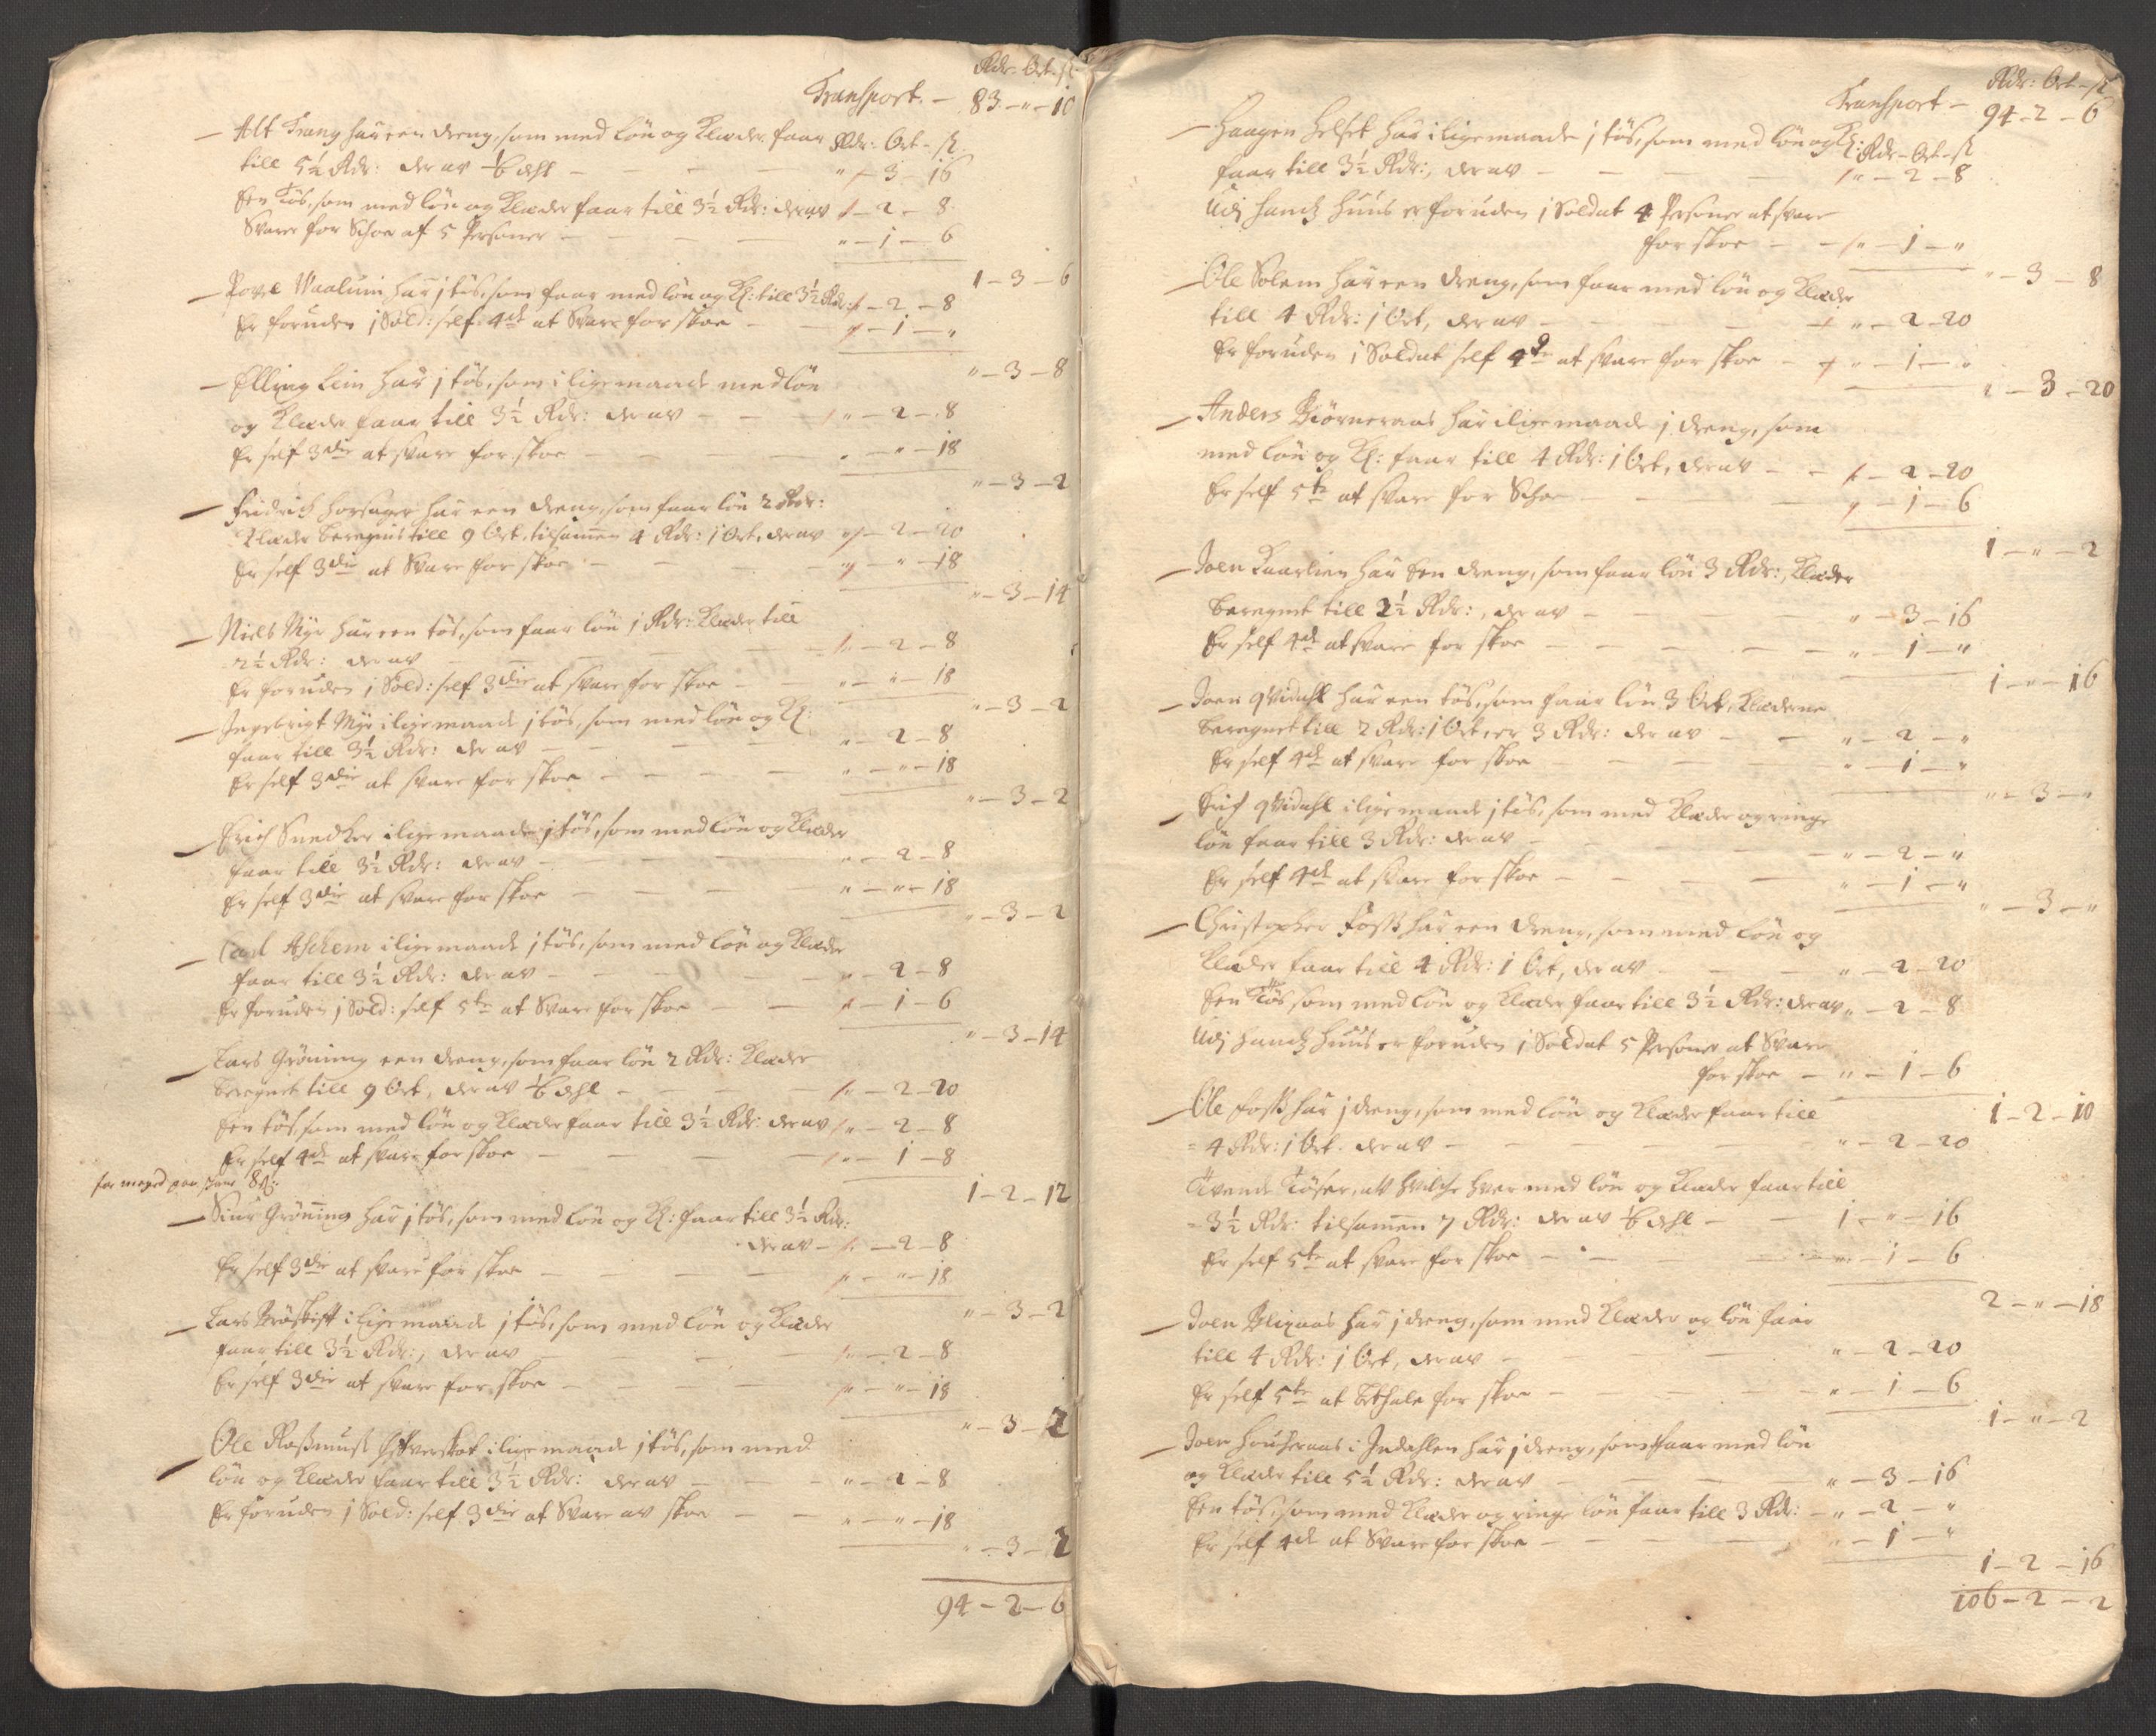 Rdr: Ort - sk
Transport. - 83 - " - 10
Alt Trang har een dreng, som med løn og Klæder faar Rdr: Ort - sk.
till 5½ Rdr: der av ⅙ dehl - " - 3 - 16
Een Tøs, som med løn og Klæder faar till 3½ Rdr: derav " - 2 - 8
Svarer for Schoe af 5 Personer - " - 1 - 6
1 - 3 - 6
Povel Waalum har 1 tøs, som faar med løn og Kl: till 3½ Rdr: " - 2 - 8
Er foruden 1 Sold: self 4de at Svare for skoe - " - 1 - "
" - 3 - 8
Elling Lein har 1 tøs, som i lige maade med løn
og Klæder faar till 3½ Rdr: der av - " - 2 - 8
Er self 3die at svare for skoe - " - " - 18
" - 3 - 2
Fridrich Horsager har een dreng, som faar løn 2 Rdr:
Klæder beregnis till 9 Ort, tilsamen 4 Rdr: 1 Ort, der av " - 2 - 20
Er self 3die at Svare for skoe - " - " - 18
" - 3 - 14
Niels Myr har een tøs, som faar løn 1 Rdr: Klæder till
2½ Rdr: der av - " - 2 - 8
Er foruden 1 Sold: self 3die at svare for skoe - " - " - 18
" - 3 - 2
Ingebrigt Myr i lige maade 1 tøs, som med løn og Kl:
faar till 3½ Rdr: der av - " - 2 - 8
Er self 3die at svare for skoe - " - " - 18
" - 3 - 2
Erich Snedker i lige maade 1 tøs, som med løn og Klæder
faar till 3½ Rdr: der av - " - 2 - 8
Er self 3die at svare for skoe - " - " - 18
" - 3 - 2
Carl Aschem i lige maade 1 tøs, som med løn og Klæder
faar till 3½ Rdr: der av - " - 2 - 8
Er foruden 1 Sold: self 5te at Svare for skoe - " - 1 - 6
" - 3 - 14
Lars Grøning een dreng, som faar løn 2 Rdr: Klæder
beregnet till 9 Ort, der av ⅙ dehl - " - 2 - 20
Een tøs, som med løn og Klæder faar till 3½ Rdr: der av " - 2 - 8
Er self 4de at svare for skoe - " - 1 - 8
for meged 8 sk:
1 - 2 - 12
Siur Grøning har 1 tøs, som med løn og Kl: faar till 3½ Rdr:
der av - " - 2 - 8
Er self 3die at svare for skoe - " - " - 18
" - 3 - 2
Lars i lige maade 1 tøs, som med løn og Klæder
faar till 3½ Rdr:, der av - " - 2 - 8
Er self 3die at svare for skoe - " - " - 18
" - 3 - 2
Ole Rassmuss i lige maade 1 tøs, som med
løn og Klæder faar till 3½ Rdr: der av - " - 2 - 8
Er foruden 1 Sold: self 3die at Svare av skoe - " - " - 18
" - 3 - 2
94 - 2 - 6
Rdr: Ort - sk
Transport - 94 - 2 - 6
Haagen Helset har i lige maade 1 tøs, som med løn og Kl: Rdr - Ort - sk
faar till 3½ Rdr:, der av - " - 2 - 8
Udj hands Huus er foruden 1 Soldat 4 Personer at svare
for skoe - " - 1 - "
" - 3 - 8
Ole Solem har een dreng, som faar med løn og Klæder
till 4 Rdr: 1 Ort, der av - " - 2 - 20
Er foruden 1 Soldat self 4de at svare for skoe - " - 1 - "
" - 3 - 20
Anders Biørneraas har i lige maade 1 dreng, som
med løn og Kl: faar till 4 Rdr: 1 Ort, der av - " - 2 - 20
Er self 5te at svare for Schoe - " - 1 - 6
1 - " - 2
Joen Kaarlien har Een dreng, som faar løn 3 Rdr:, Klæder
beregnet till 2½ Rdr:, der av - " - 3 - 16
Er self 4de at svare for skoe - " - 1 - "
1 - " - 16
Joen Qvidahl har een tøs, som faar løn 3 Ort, Klæderne
beregnet till 2 Rdr: 1 Ort er 3 Rdr: der av - " - 2 - "
Er self 4de at svare for skoe - " - 1 - "
" - 3 - "
Erich Qvidahl i lige maade 1 tøs, som med Klæder og ringe
løn faar till 3 Rdr: der av - " - 2 - "
Er self 4de at svare for skoe - " - 1 - "
" - 3 - "
Christopher Foss har een dreng, som med løn og
Klæder faar till 4 Rdr: 1 Ort, der av - " - 2 - 20
Een Tøs som med løn og Klæder faar till 3½ Rdr: der av " - 2 - 8
Udj hands huus er foruden 1 Soldat 5 Personer at Svare
for skoe - " - 1 - 6
1 - 2 - 10
Ole Foss har 1 dreng, som med løn og Klæder faar till
4 Rdr: 1 Ort. der av - " - 2 - 20
Tvende Tøser, av hvilche hver med løn og Klæder faar till
3½ Rdr: tilsamen 7 Rdr: der av ⅙ dehl - 1 - " - 16
Er self 5te at svare for skoe - " - 1 - 6
2 - " - 18
Joen Blixaas har 1 dreng, som med Klæder og løn faar
till 4 Rdr: 1 Ort, der av - " - 2 - 20
Er self 5te at bethale for skoe - " - 1 - 6
1 - " - 2
Joen i Indahlen har 1 dreng, som faar med løn
og Klæder till 5½ Rdr: der av - " - 3 - 16
Een tøs, som med Klæder og ringe løn faar till 3 Rdr: - " - 2 - "
Er self 4de at Svare for skoe - " - 1 - "
1 - 2 - 16
106 - 2 - 2